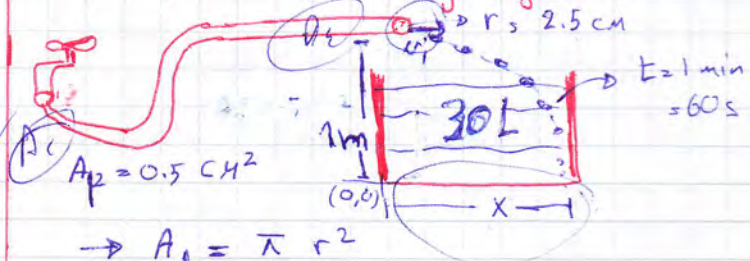 A₂
→ r = 2.5 cm
t = 1 min
= 60 s
30 L
1m
A₁
A₂ = 0.5 CM²
(0,0)
X
→ A₁ = π r²